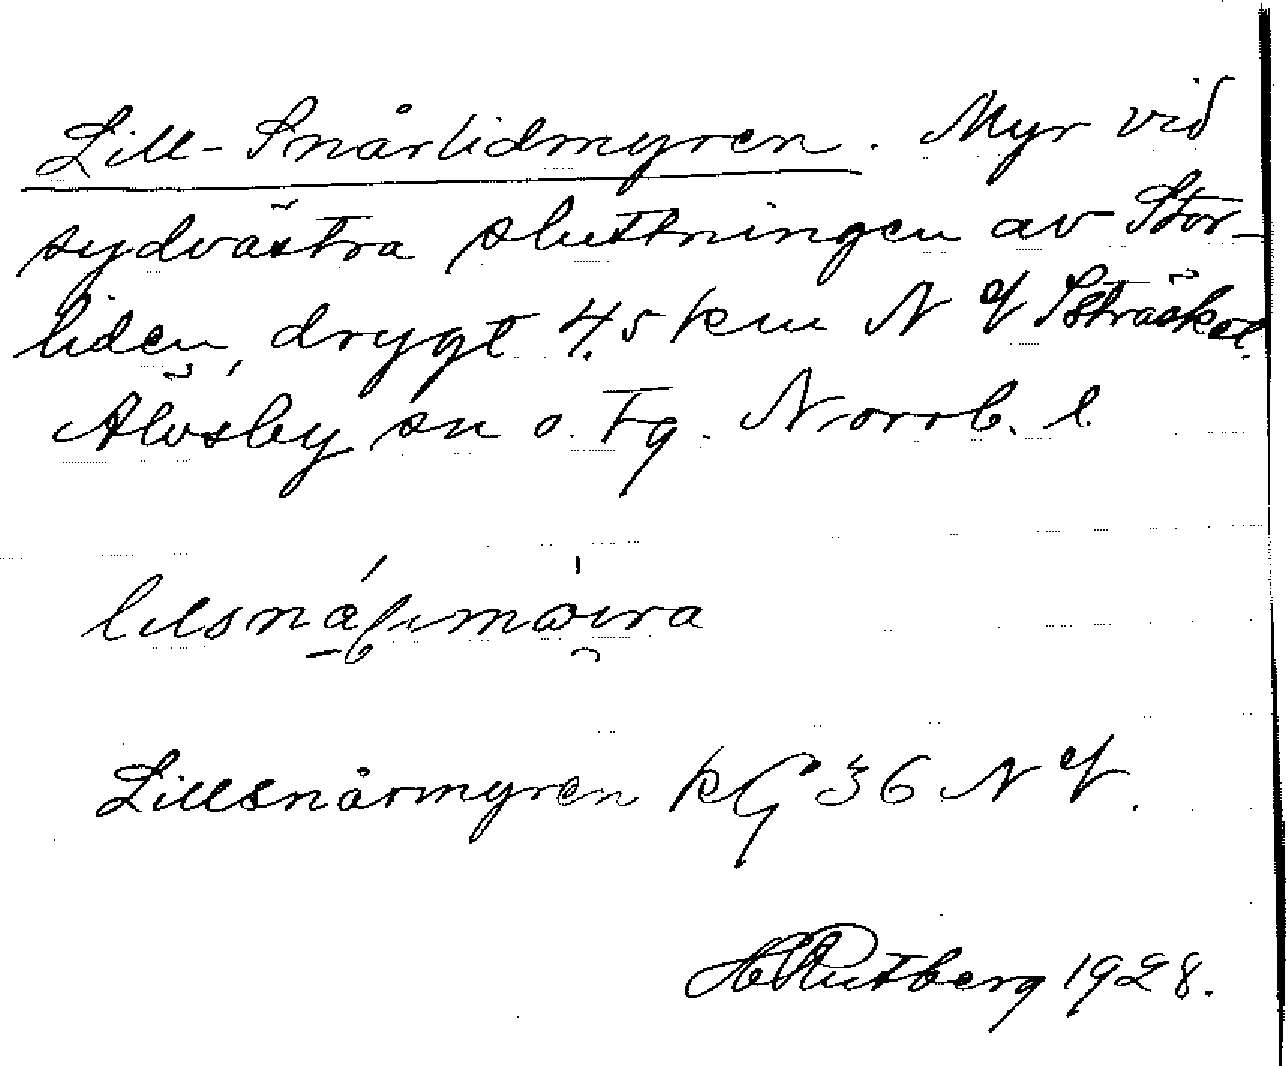 Lill-Snårlidmyren. Myr vid
sydvästra sluttningen av Stor-
liden, drygt 4,5 km N
Älvsby sn o. Tg. Norrb. l.
Lillsnårmyren kG 36 N
H Rutberg 1928.